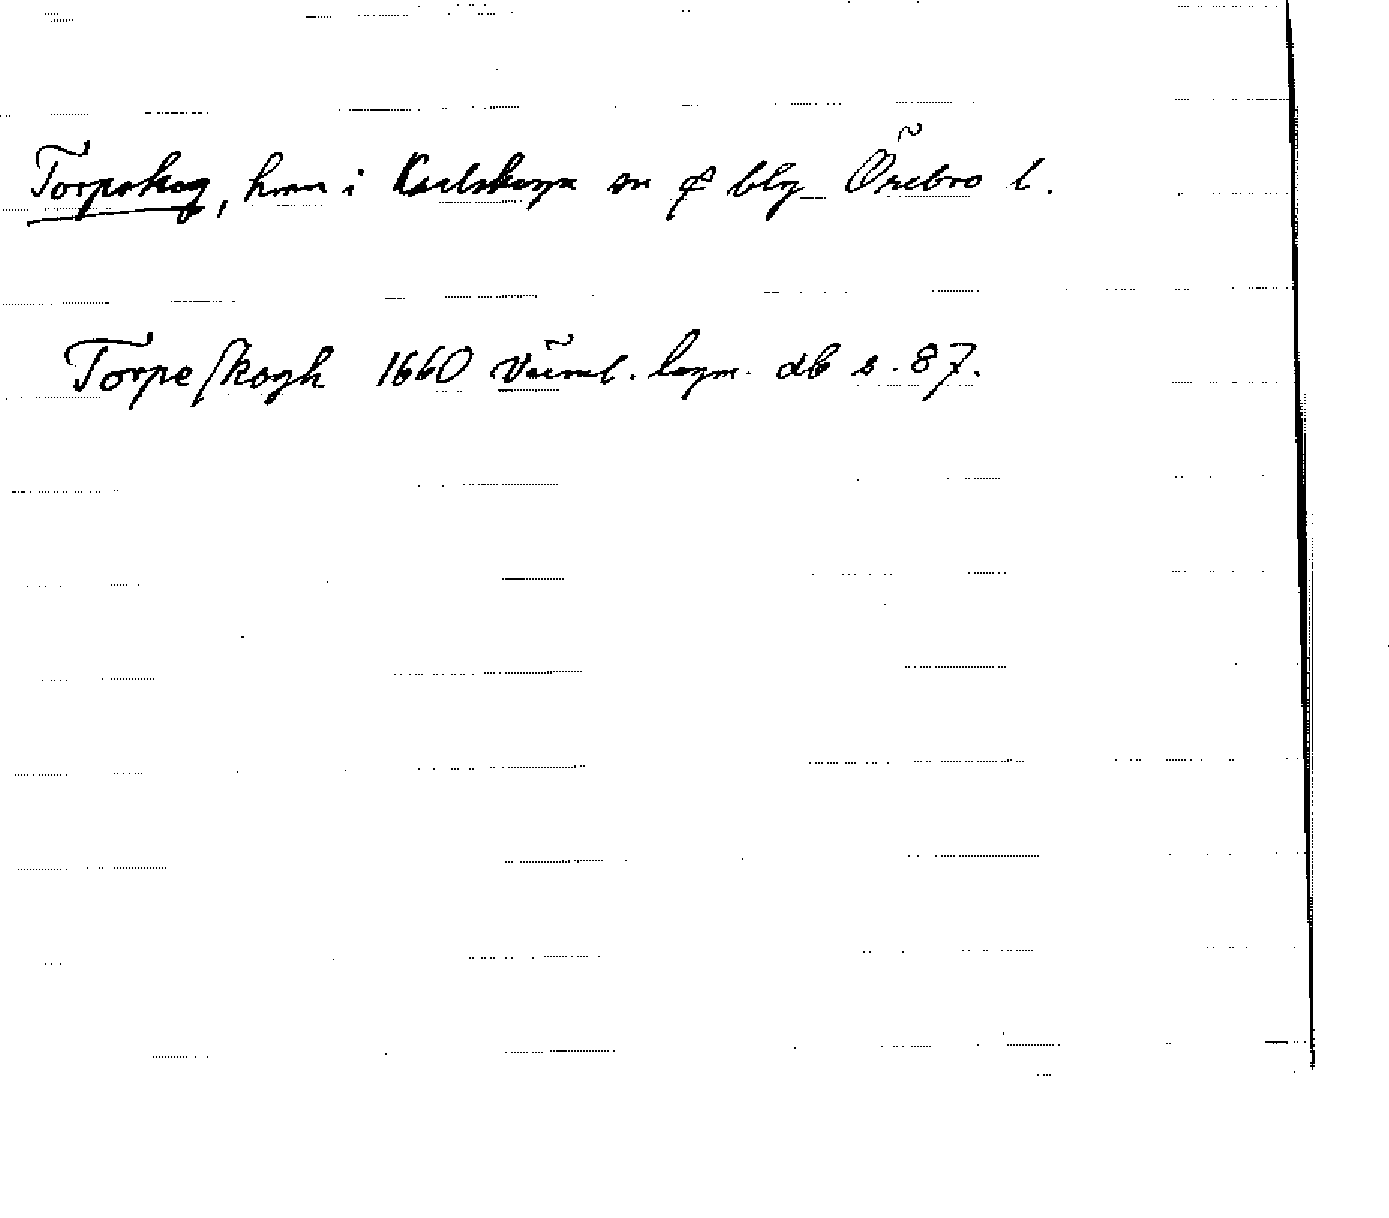 Torpskog, hmn i Karlskoga sn o blg Örebro l.
Torpeſkogh 1660 Värml. lagm. db s. 87.